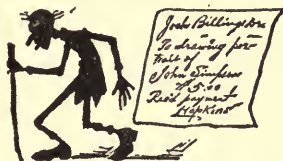 Josh Billings Dr
To drawing por-
trait of
John Simpson
$5.00
Rec'd payment
Hopkins